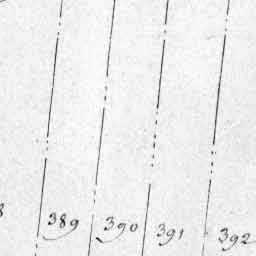 389 390 391 392